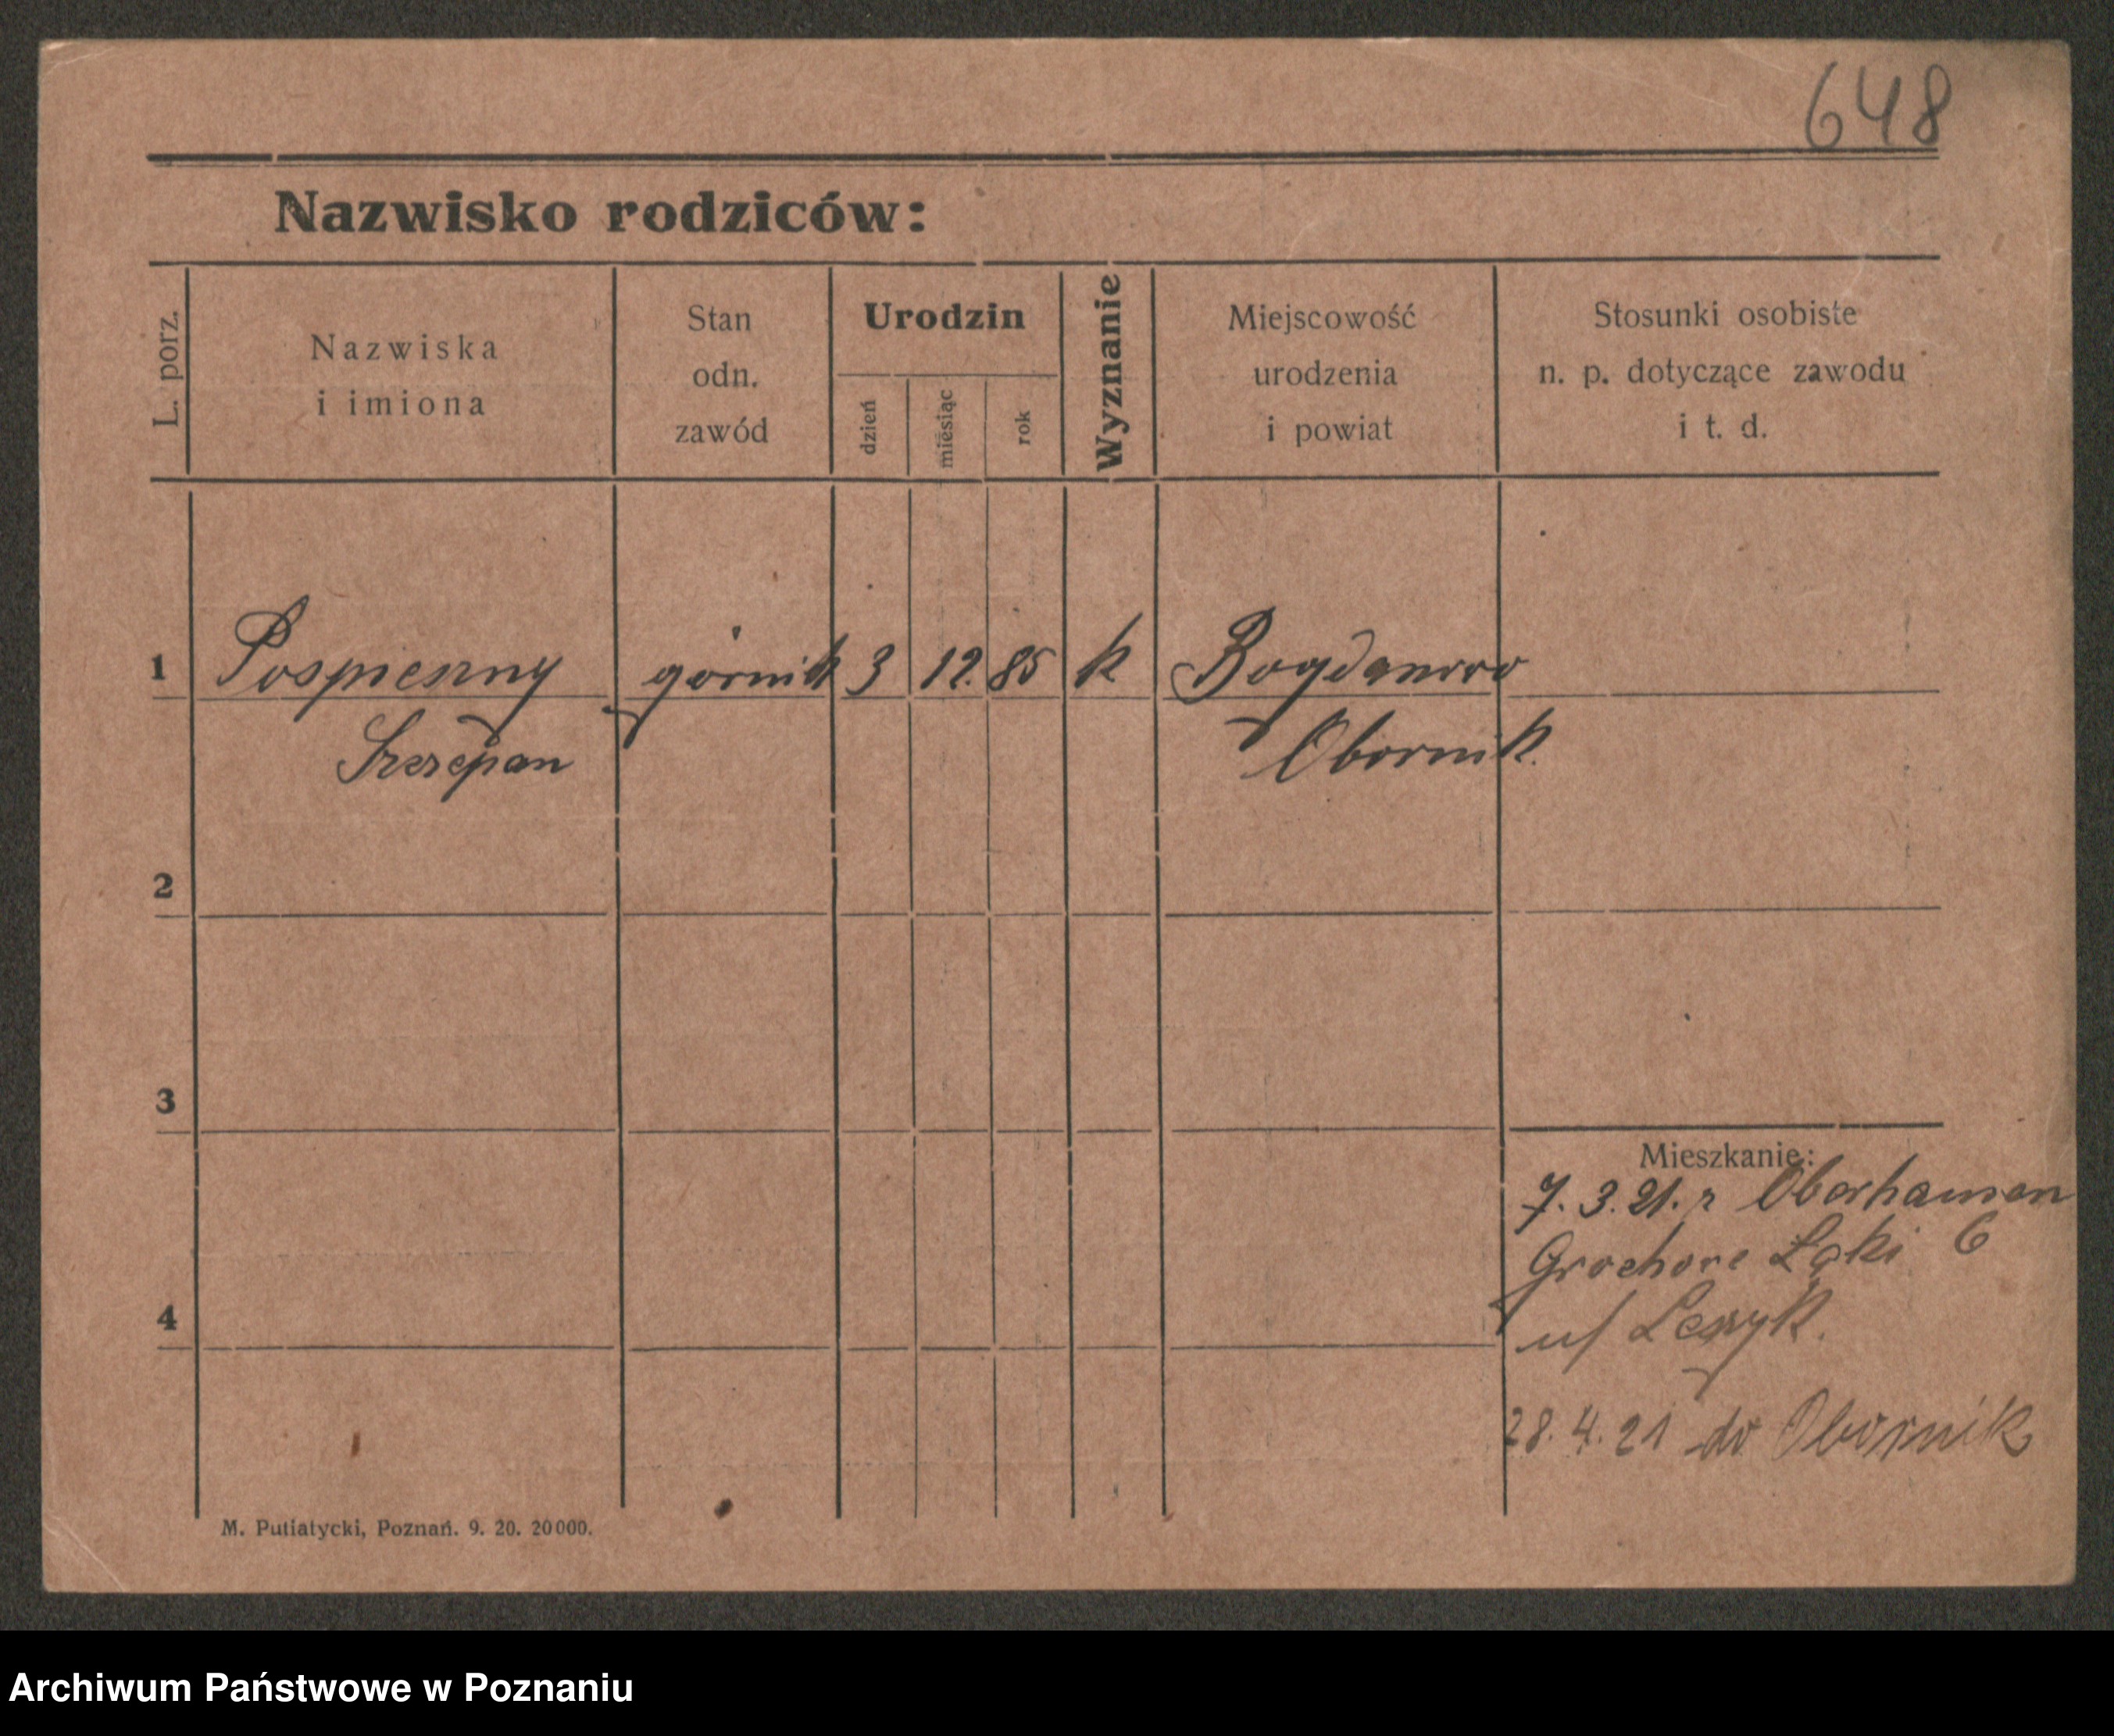 648
Nazwisko rodziców:
L. porz.
Nazwiska
i imiona
Stan
odn.
zawód
Urodzin
dzień
miesiąc
rok
Wyznanie
Miejscowość
urodzenia
i powiat
Stosunki osobiste
n. p. dotyczące zawodu
i t. d.
1 Pospieszny górnik 3 12. 85 k Bogdanowo
Szczepan Obornik.
2
3
Mieszkanie:
7. 3. 21. z Oberhausen
Grochowe Łąki 6
4
u/
28. 4. 21 do Obornik
M. Putiatycki, Poznań. 9. 20. 20000.
Archiwum Państwowe w Poznaniu